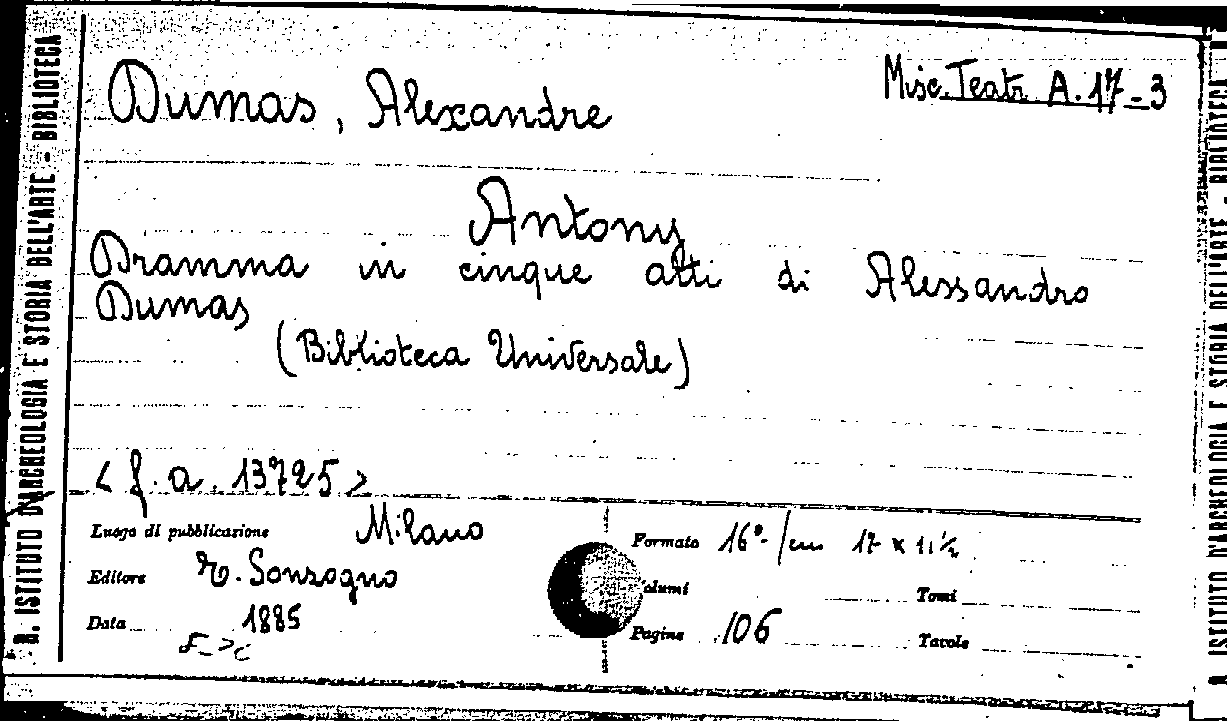 Dumas, Alexandre
Misc. Teatr. A. 17-3
Antony
Dramma in cinque atti di Alessandro
Dumas
(Biblioteca Universale)
< f. a. 13725 >
Luogo di pubblicazione Milano
Editore E. Sonzogno
Data 1885
Formato 16°-/cm 17 x 11 ½
Volumi Tomi
Pagine 106 Tavole
R. ISTITUTO D'ARCHEOLOGIA E STORIA DELL'ARTE - BIBLIOTECA
R. ISTITUTO D'ARCHEOLOGIA E STORIA DELL'ARTE - BIBLIOTECA